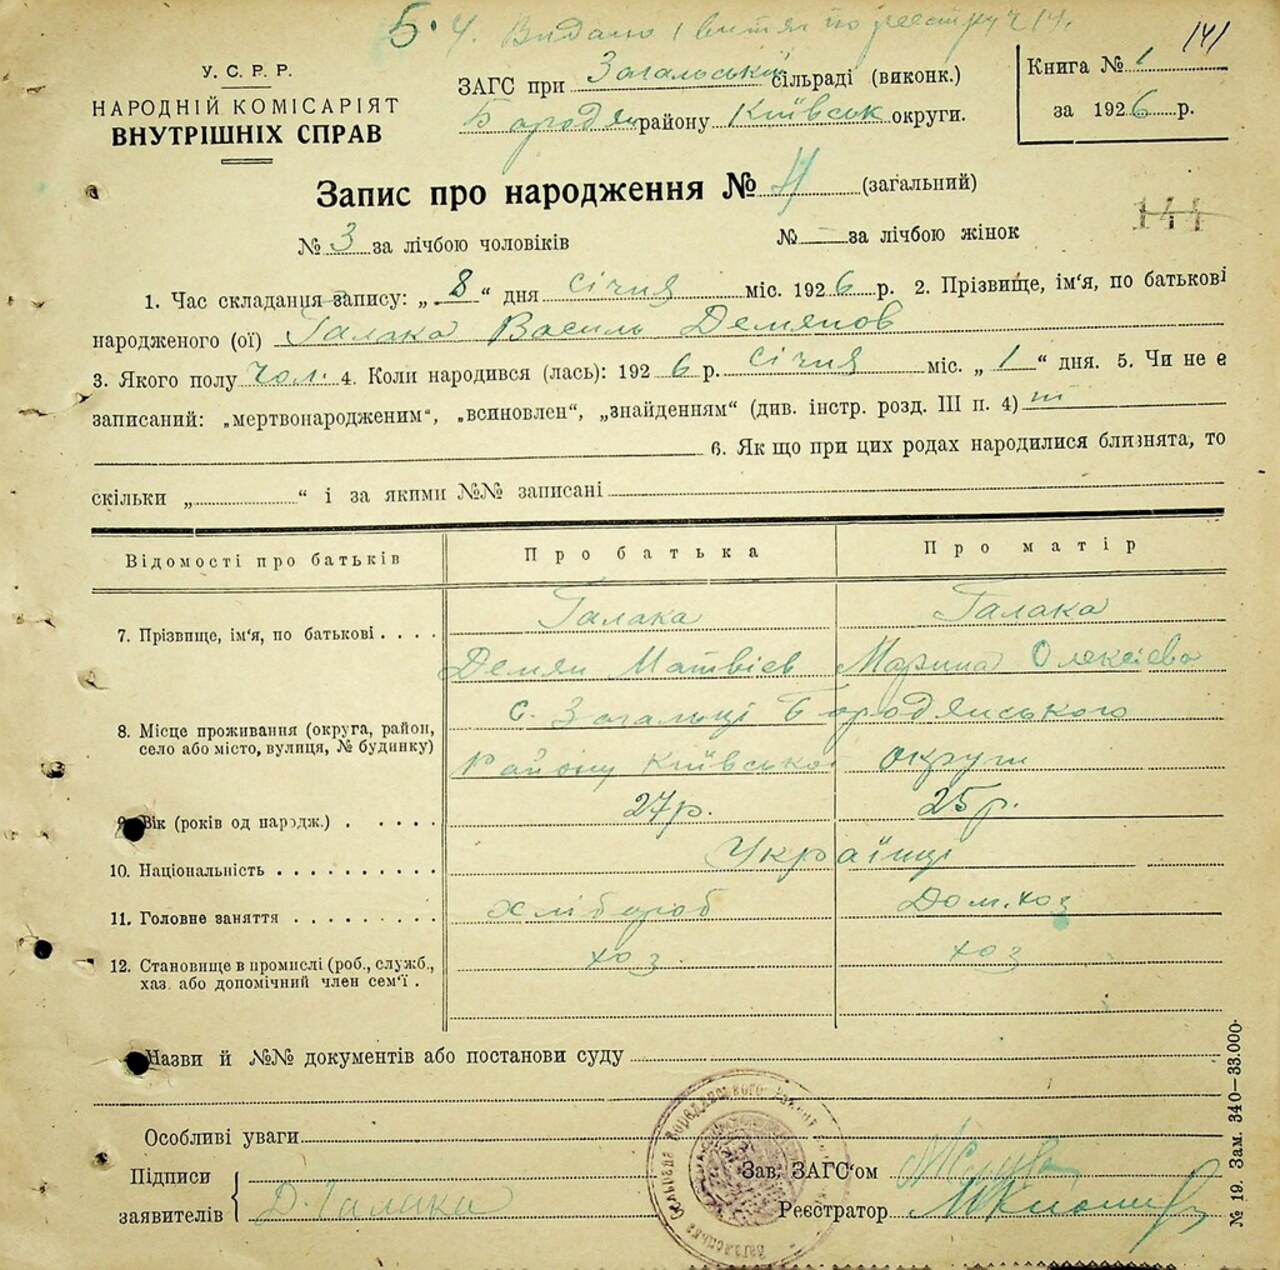 5.
Ч. Видано 1 витяг по реєстру Ч 14.
141
У. С. Р. Р.
НАРОДНІЙ КОМІСАРІЯТ
ВНУТРІШНІХ СПРАВ
ЗАГС при Загальській сільраді (виконк.)
Бородян району Київськ округи.
Книга № 1
за 1926 р.
Запис про народження № 4 (загальний)
144
№ 3 за лічбою чоловіків № — за лічбою жінок
1. Час складання запису: „ 8 “ дня січня міс. 1926 р. 2. Прізвище, ім'я, по батькові
народженого (ої) Галака Василь Демянов
3. Якого полу чол. 4. Коли народився (лась): 1926 р. січня міс. „ 1 “ дня. 5. Чи не є
записаний: „мертвонародженим“, „всиновлен“, „знайденням“ (див. інстр. розд. III п. 4)
6. Як що при цих родах народилися близнята, то
скільки „ “ і за якими №№ записані
Відомості про батьків Про батька Про матір
7. Прізвище, ім'я, по батькові . . . . Галака Галака
Демян Матвієв Марина Олексієва
8. Місце проживання (округа, район,
село або місто, вулиця, № будинку)
с. Загальці Бородянського
Району Київської округи
9. Вік (років од народж.) . . . . . 27р. 25р.
10. Національність . . . . . . . . . . Українці
11. Головне заняття . . . . . . . . . хлібороб Дом. хоз
12. Становище в промислі (роб., служб.,
хаз. або допомічний член сем'ї .
хоз хоз
Назви й №№ документів або постанови суду
Особливі уваги
Підписи
заявителів
Д. Галака
Зав. ЗАГС'ом
Реєстратор
№ 19. Зам. 340—33.000